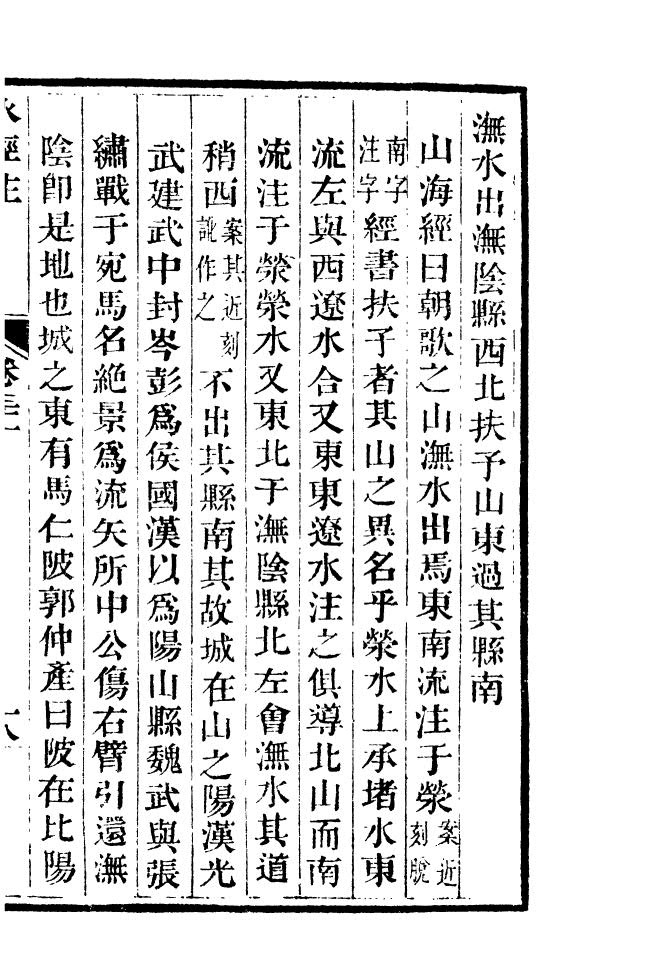 潕水出潕陰縣西北扶予山東過其縣南
山海經曰朝歌之山潕水出焉東南流注于滎案近刻脫
南字注字經書扶予者其山之異名乎滎水上承堵水東
流左與西遼水合又東東遼水注之俱導北山而南
流注于滎滎水又東北于潕陰縣北左會潕水其道
稍西案其近刻訛作之不出其縣南其故城在山之陽漢光
武建武中封岑彭爲侯國漢以爲陽山縣魏武與張
繡戰于宛馬名絕景爲流矢所中公傷右臂引還潕
陰卽是地也城之東有馬仁陂郭仲產曰陂在比陽
水經注 卷三十一 十八